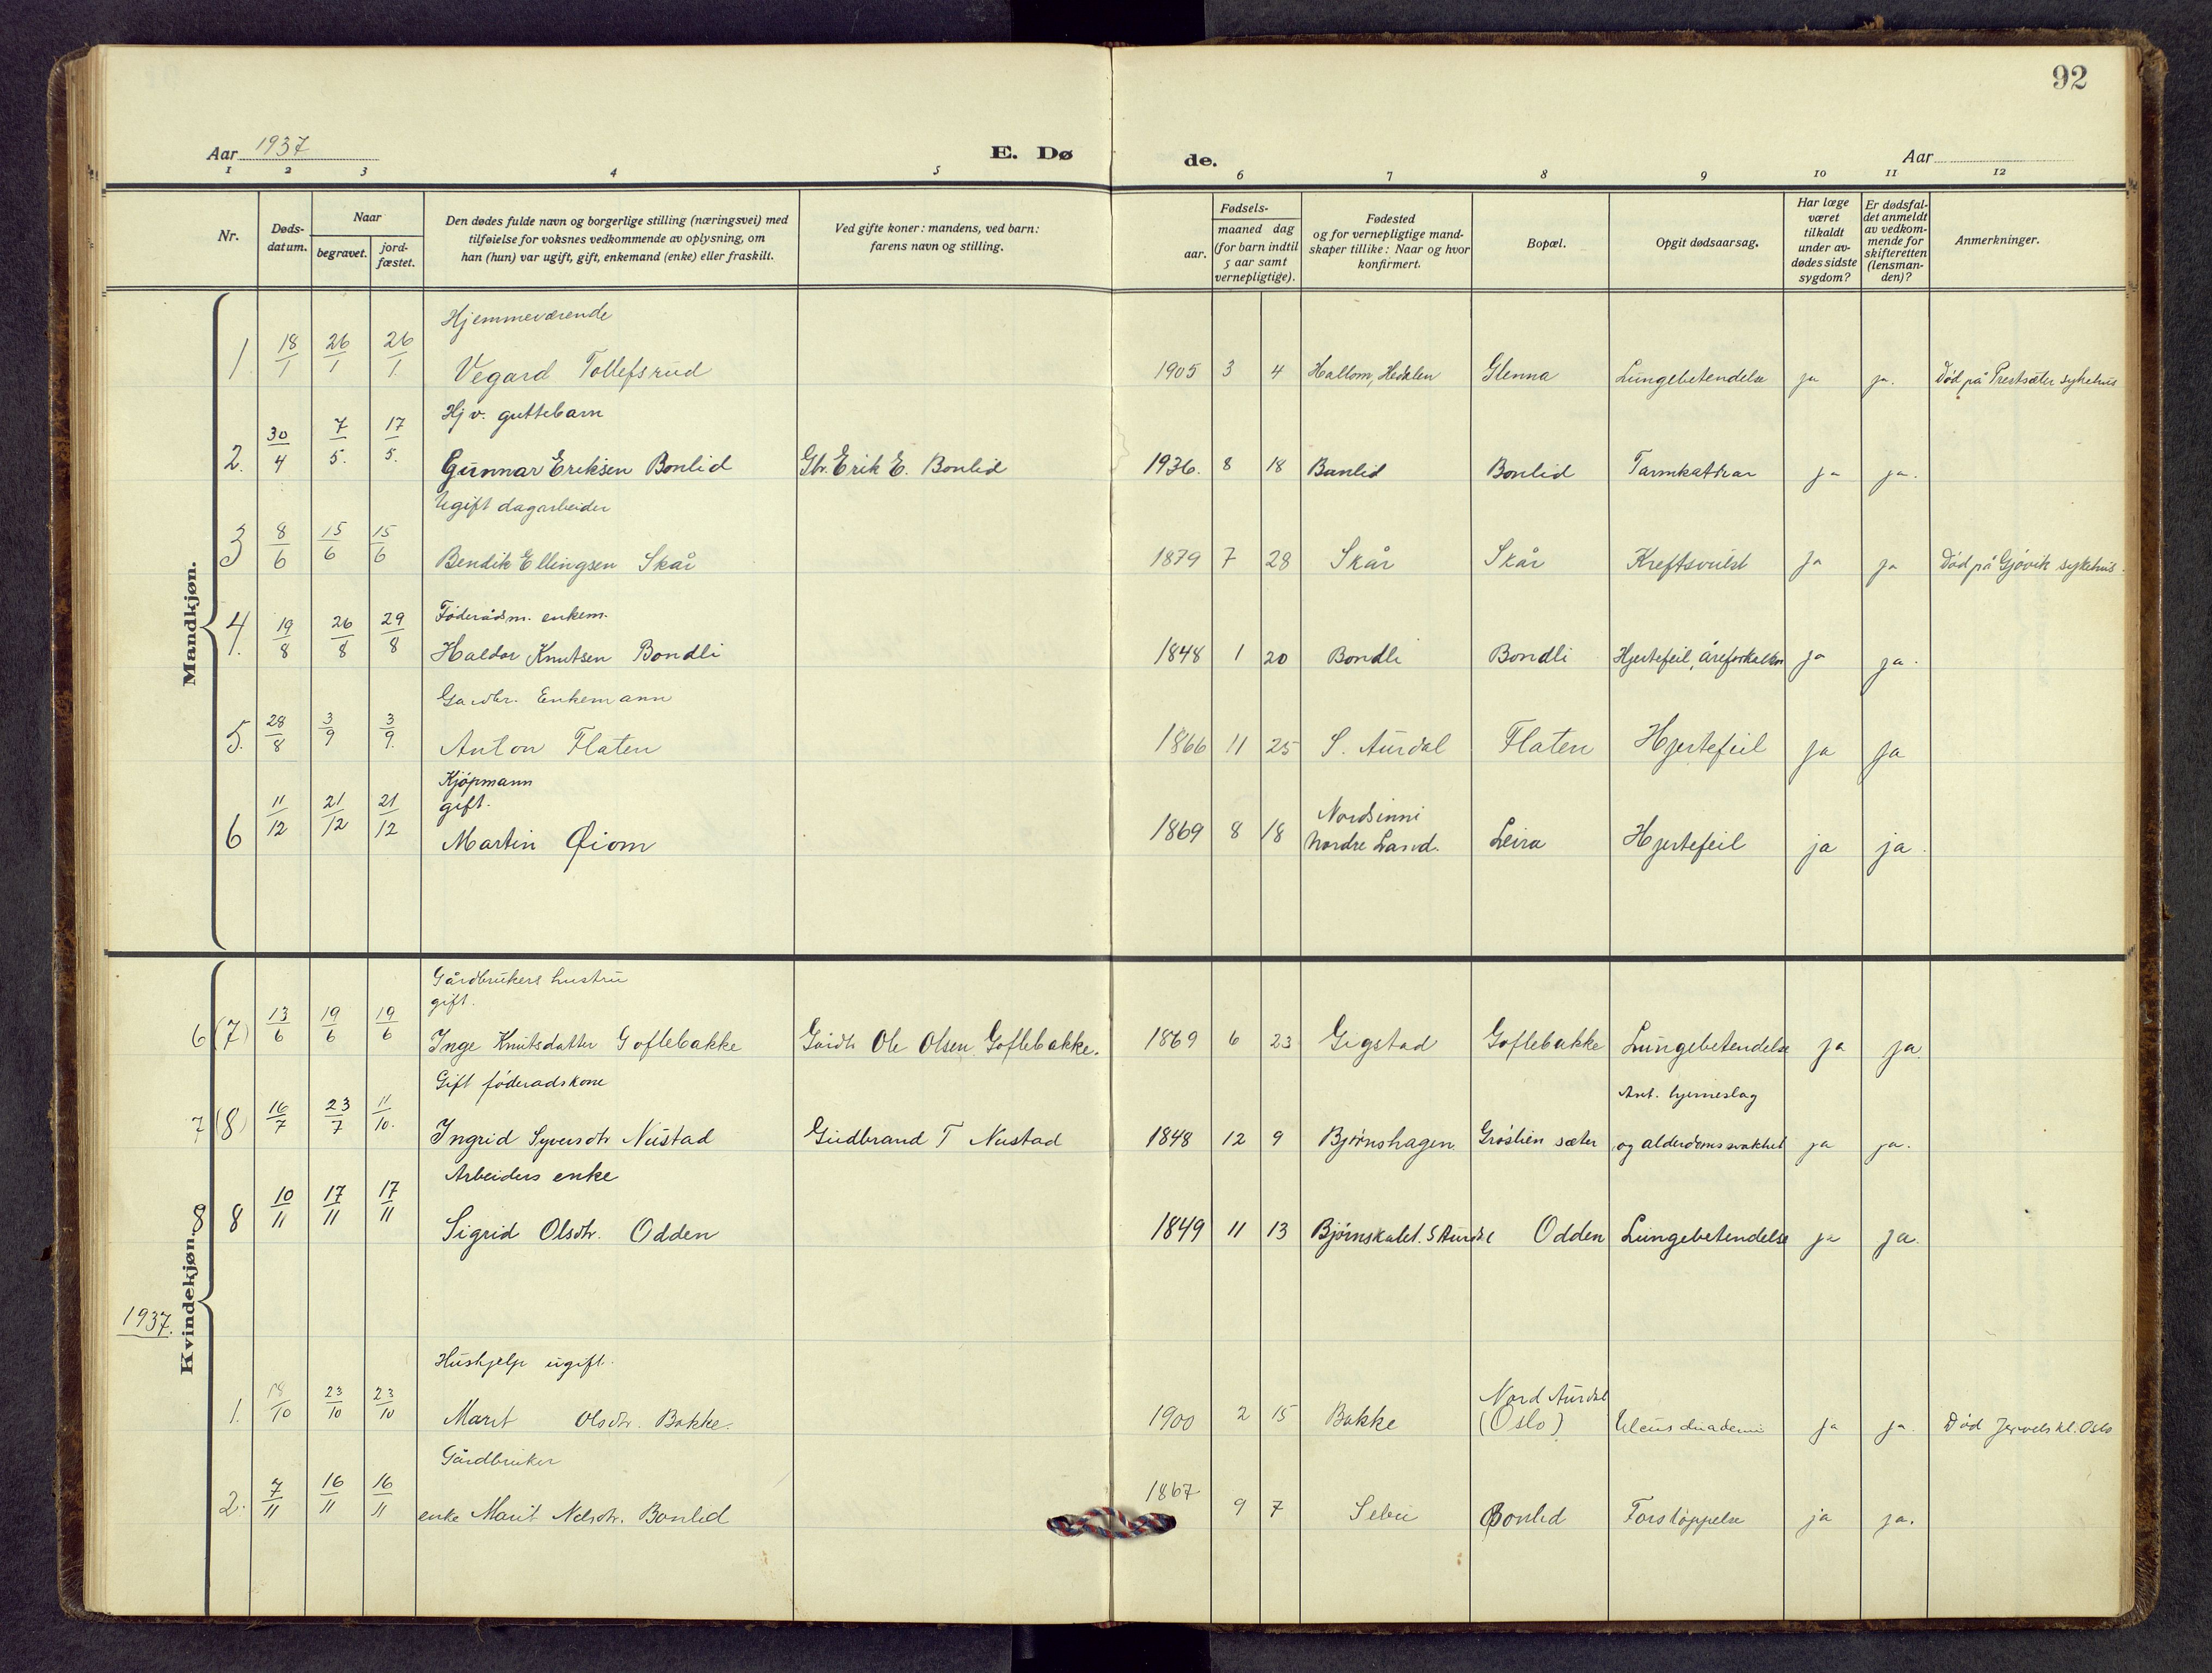 92
Aar 1937 E. Dø de. Aar
1 2 3 4 5 6 7 8 9 10 11 12
Nr.
Døds-
datum.
Naar
begravet.
jord-
fæstet.
Den dødes fulde navn og borgerlige stilling (næringsvei) med
tilføielse for voksnes vedkommende av oplysning, om
han (hun) var ugift, gift, enkemand (enke) eller fraskilt.
Ved gifte koner: mandens, ved barn:
farens navn og stilling.
Fødsels-
aar.
maaned dag
(for barn indtil
5 aar samt
vernepligtige).
Fødested
og for vernepligtige mand-
skaper tillike: Naar og hvor
konfirmert.
Bopæl.
Opgit dødsaarsag.
Har læge
været
tilkaldt
under av-
dødes sidste
sygdom?
Er dødsfal-
det anmeldt
av vedkom-
mende for
skifteretten
(lensman-
den)?
Anmerkninger.
Mandkjøn.
Hjemmeværende
1 18/1 26/1 26/1. Vegard Tollefsrud 1905 3 4 Hallom, Hedalen Glenna Lungebetendelse ja ja. Død på Prestsæter sykehus
Hjv. guttebarn
2. 30/4 7/5. 17/5. Gunnar Eriksen Bonlid Gbr. Erik E. Bonlid 1936. 8 18 Bonlid Bonlid Tarmkatthar ja ja.
Ugift dagarbeider
3 8/6 15/6 15/6 Bendik Ellingsen Skår 1879 7 28 Skår Skår Kreftsvulst ja ja Død på Gjøvik sykehus.
Føderådsm. enkem.
4. 19/8 26/8 29/8 Haldor Knutsen Bondli 1848 1 20 Bondli Bondli Hjertefeil, ja ja.
Gardbr. Enkemann
5. 28/8 3/9 3/9. Anton Flaten 1866 11 25 S. Aurdal Flaten Hjertefeil ja ja
Kjøpmann
gift.
Nordsinni
6 11/12 21/12 21/12 Martin Øiom 1869 8 18 Nordre Land. Leira Hjertefeil ja ja.
Kvindekjøn.
Gårdbrukers hustru
gift.
6 (7) 13/6 19/6 19/6 Inge Knutsdatter Goflebakke Gårdb. Ole Olsen Goflebakke. 1869 6 23 Gigstad Goflebakke Lungebetendelse ja ja.
Gift føderadskone
Ant. hjerneslag
7 (8) 16/7 23/7 11/10. Ingrid Syversdtr Nustad Gudbrand T Nustad 1848 12 9 Bjørnshagen Grøslien sæter og alderdomssvakhet ja ja.
Arbeiders enke
8 8 10/11 17/11 17/11 Sigrid Olsdtr. Odden 1849 11 13 Bjørnskalet. S Aurdal Odden Lungebetendelse ja ja.
1937.
Hushjelp ugift.
Nord Aurdal
1. 18/10 23/10 23/10 Marit Olsdtr. Bakke. 1900 2 15 Bakke (Oslo) Ulcus duodeni ja ja. Død Oslo
Gårdbruker
2. 7/11 16/11 16/11 enke Marit Nelsdtr. Bonlid 1867 9 7 Sebu Bonlid Forstoppelse ja ja.